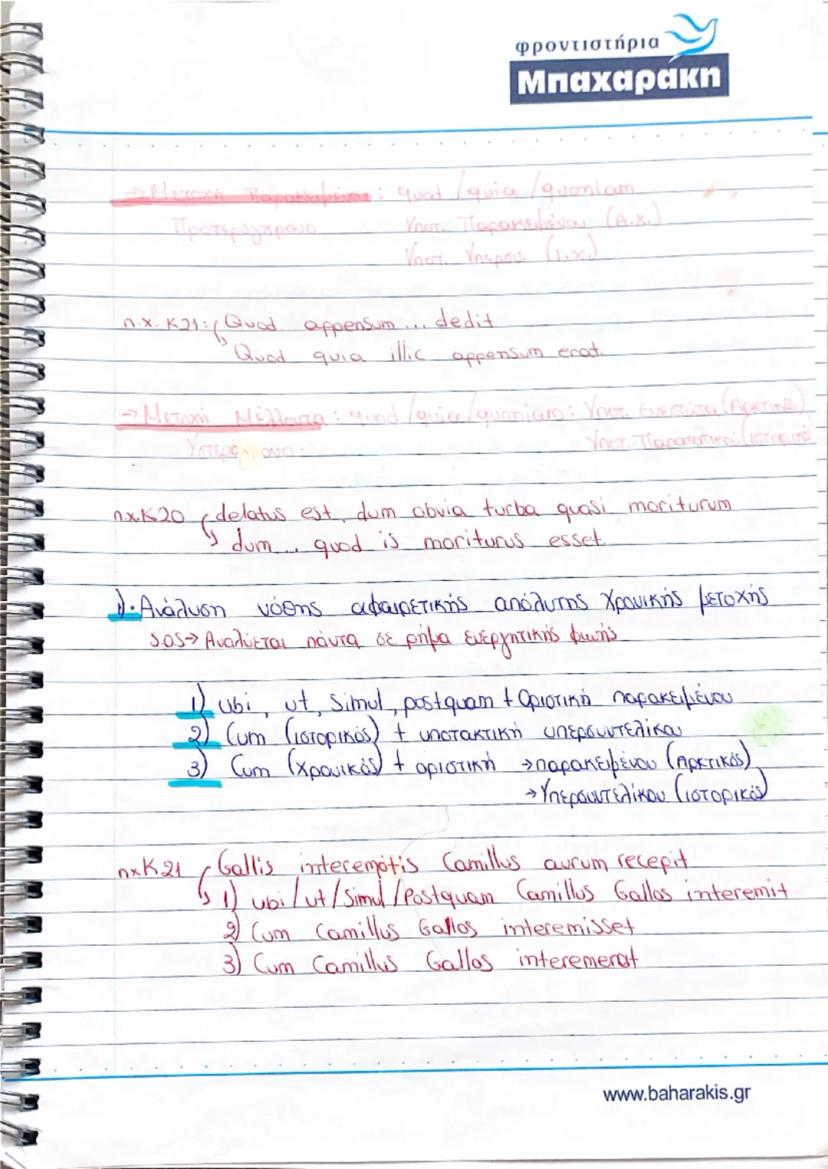 φροντιστήρια
Μπαχαράκη
→Μετοχή Παρακειμένου: quod/quia/quoniam
Προτερόχρονο Υποτ. Παρακειμένου (Α.χ.)
Υποτ. Υπερσυ. (Ι.χ.)
π.χ. Κ21: Quod appensum... dedit
Quod quia illic appensum erat.
→Μετοχή Μέλλοντα: quod/quia/quoniam: Υποτ. Ενεστώτα (Αρκτικό)
Υστερόχρονο. Υποτ. Παρατατικού (ιστορικό
πχ Κ20 delatus est, dum obvia turba quasi moriturum
dum.. quod is moriturus esset.
1). Ανάλυση νόθης αφαιρετικής απόλυτης χρονικής μετοχής
S.O.S→ Αναλύεται πάντα σε ρήμα ενεργητικής φωνής
1) ubi, ut, Simul, postquam + Οριστική παρακειμένου
2) Cum (ιστορικός) + υποτακτική υπερσυντελίκου
3) Cum (χρονικός) + οριστική →παρακειμένου (Αρκτικός)
→Υπερσυντελίκου (ιστορικός)
πχ Κ21 Gallis interemptis Camillus aurum recepit
1) ubi/ut/Simul/Postquam Camillus Gallos interemit
2) Cum Camillus Gallos interemisset
3) Cum Camillus Gallos interemerat
www.baharakis.gr